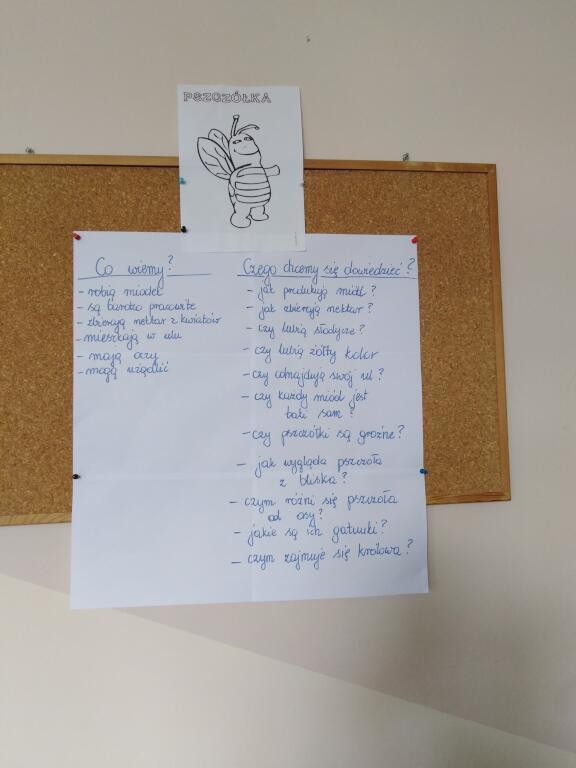 PSZCZÓŁKA
Co wiemy?
- robią miodek
- są bardzo pracowite
- zbierają nektar z kwiatów
- mieszkają w ulu
- mają oczy
- mogą użądlić
Czego chcemy się dowiedzieć?
- jak produkują miód?
- jak zbierają nektar?
- czy lubią słodycze?
- czy lubią żółty kolor
- czy odnajdują swój ul?
- czy każdy miód jest
taki sam?
- czy pszczółki są groźne?
- jak wygląda pszczoła
z bliska?
- czym różni się pszczoła
od osy?
- jakie są ich gatunki?
- czym zajmuje się królowa?